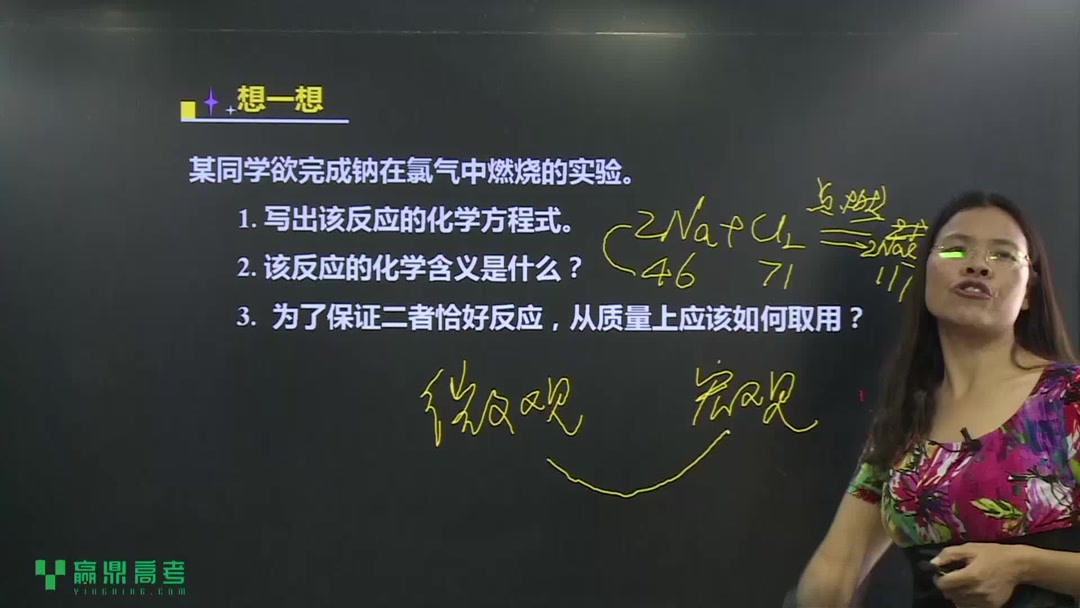 想一想
某同学欲完成钠在氯气中燃烧的实验。
1. 写出该反应的化学方程式。
2. 该反应的化学含义是什么？
3. 为了保证二者恰好反应，从质量上应该如何取用？
点燃
2Na+Cl₂
2NaCl
46 71 117
微观 宏观
赢鼎高考
YINGDING.COM